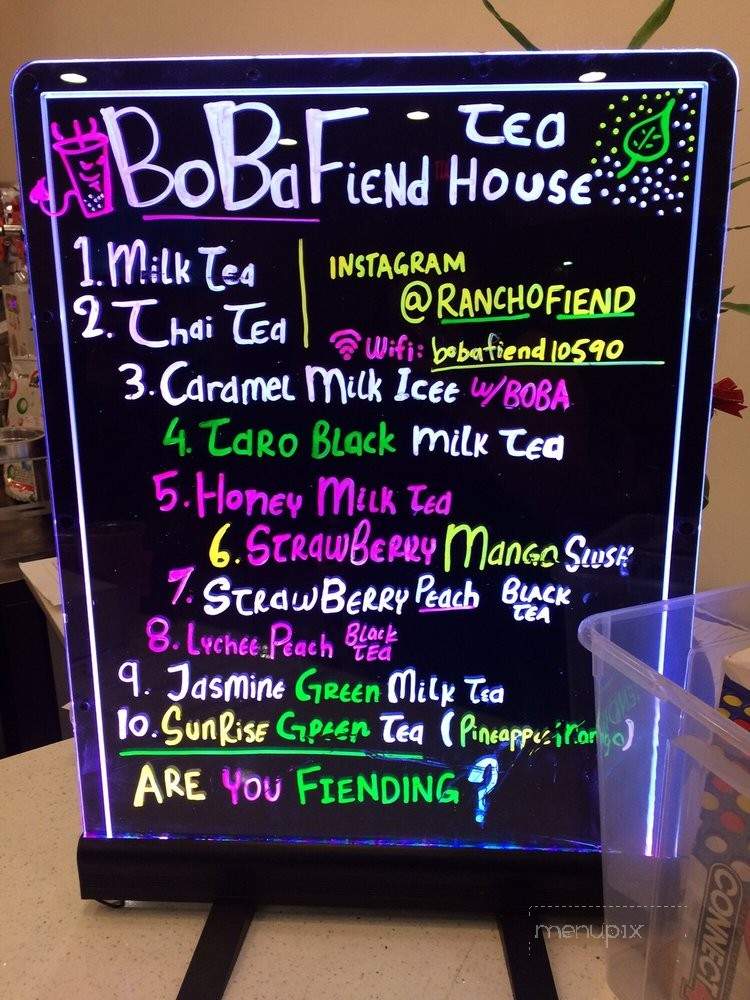 BoBa Fiend Tea House
1. Milk Tea
2. Thai Tea
INSTAGRAM
@RANCHOFIEND
Wifi: bobafiend10590
3. Caramel Milk Icee w/BOBA
4. Taro Black Milk Tea
5. Honey Milk Tea
6. Strawberry Mango Slush
7. Strawberry Peach Black Tea
8. Lychee Peach Black Tea
9. Jasmine Green Milk Tea
10. SunRise Green Tea (Pineapple, Mango)
ARE YOU FIENDING?
CONNECT
menupix